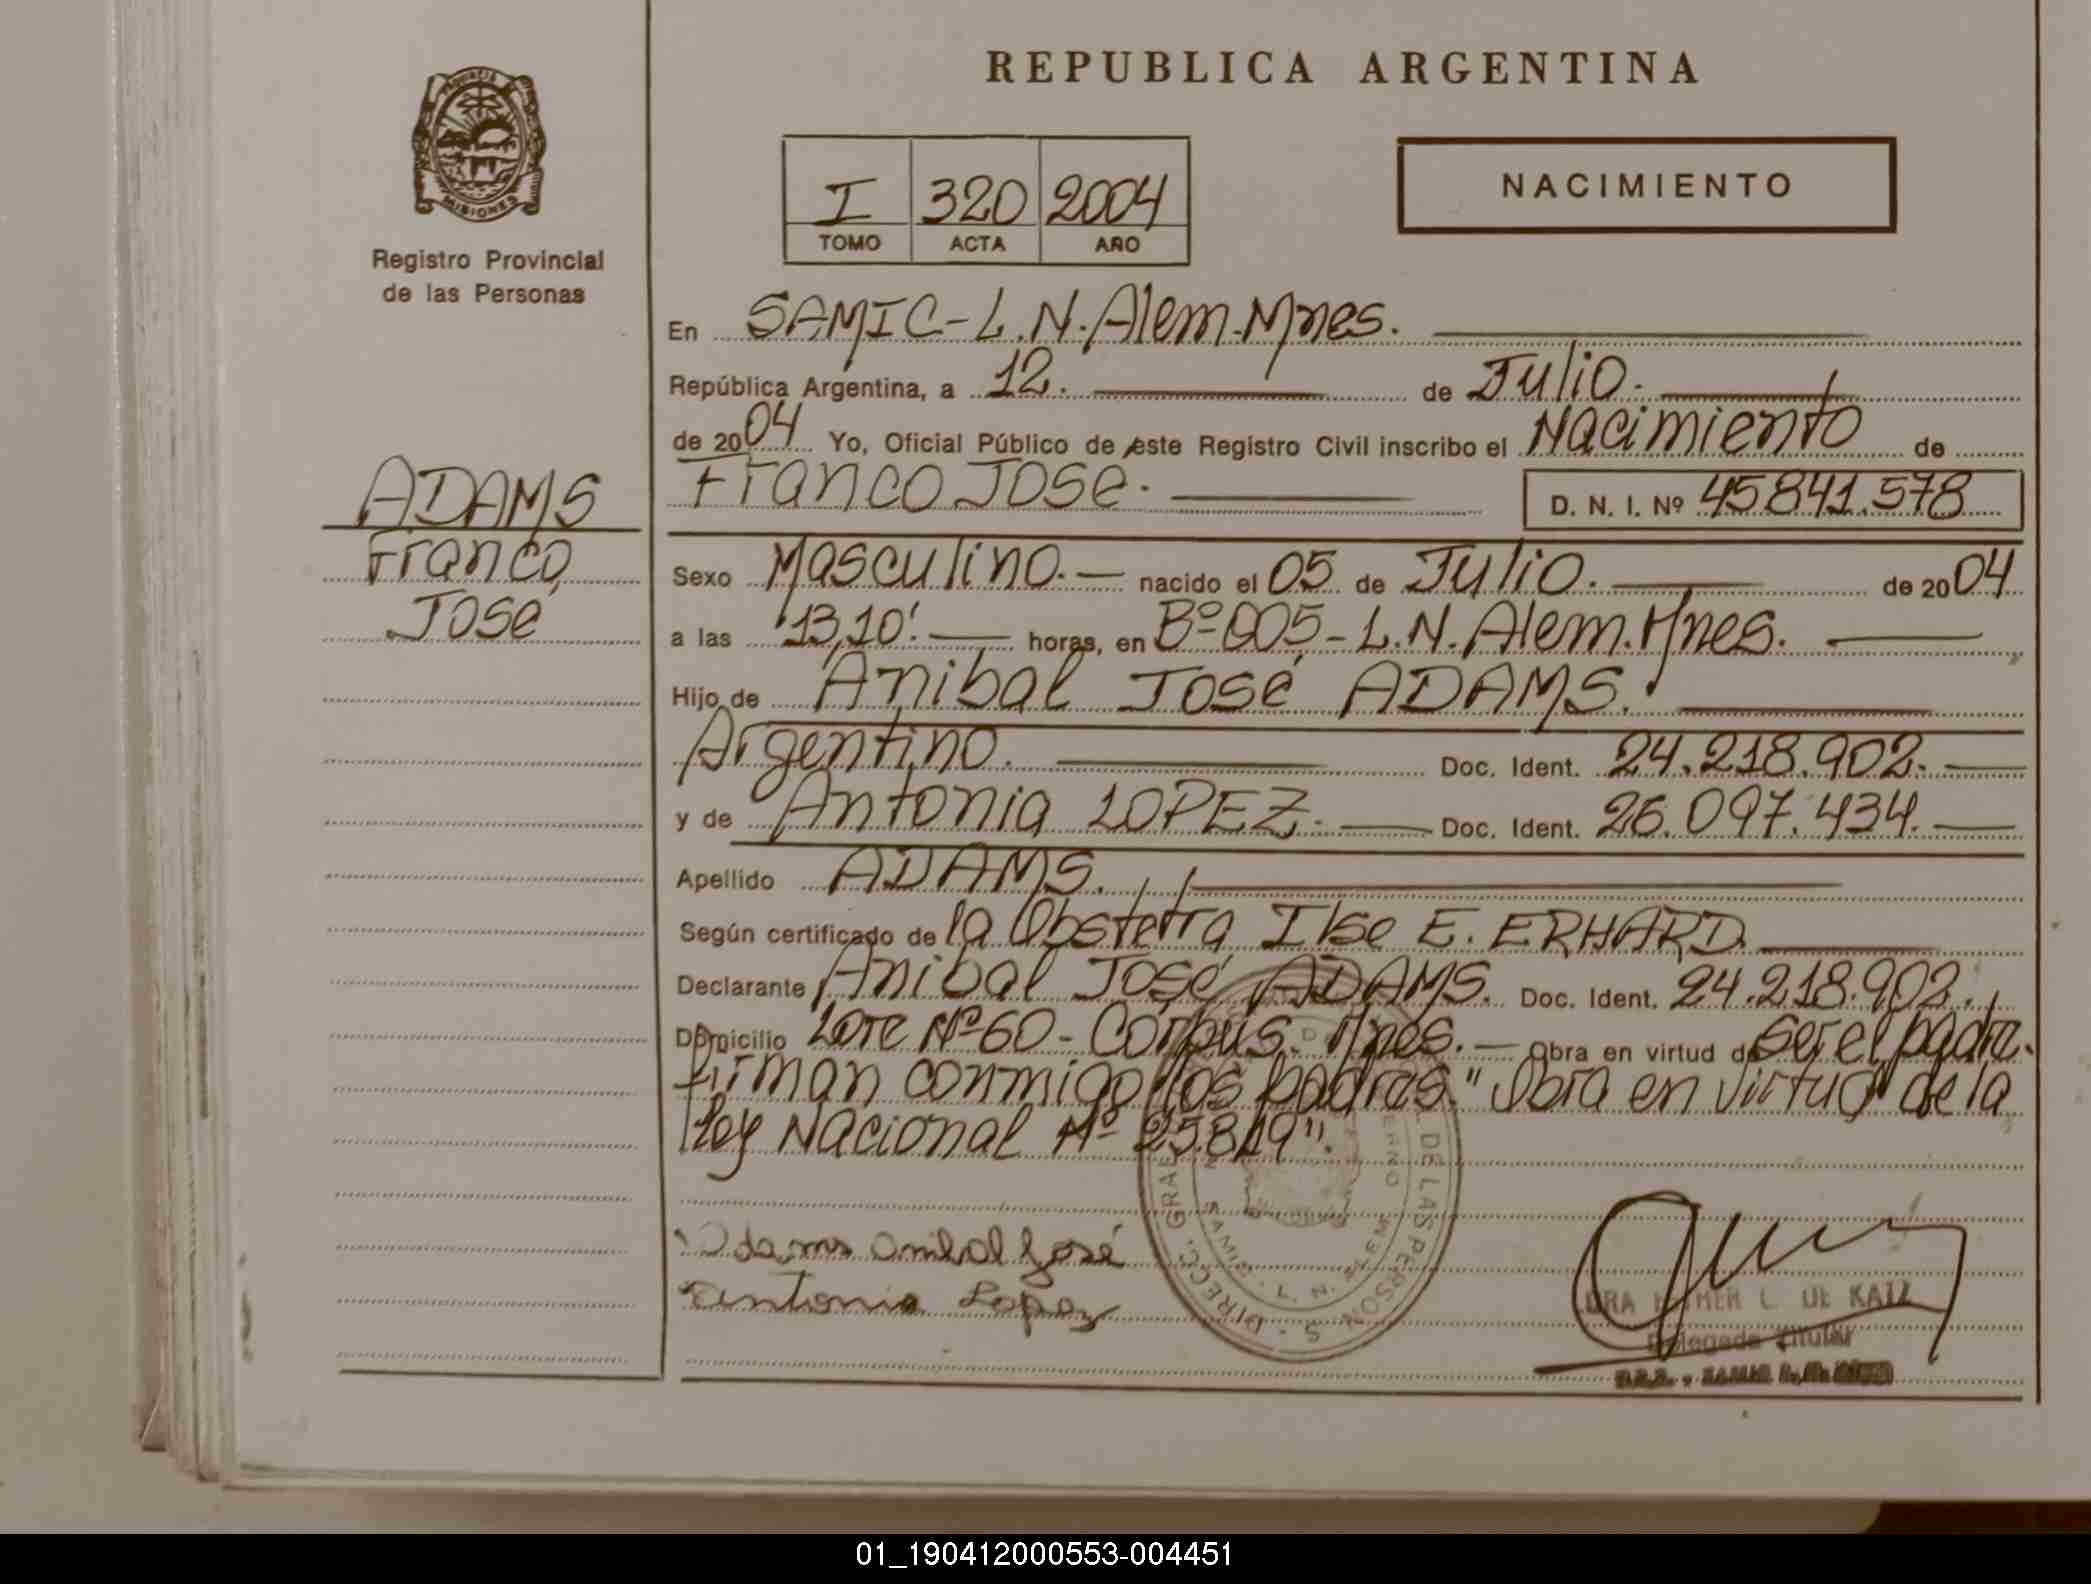 REPUBLICA ARGENTINA
PROVINCIA
MISIONES
Registro Provincial
de las Personas
I 320 2004
TOMO ACTA AÑO
NACIMIENTO
En SAMIC-L.N.Alem.Mnes.
República Argentina, a 12. de Julio.
de 2004 Yo, Oficial Público de este Registro Civil inscribo el Nacimiento de
Franco José. D. N. I. Nº 45841.578
ADAMS
Franco
José
Sexo Masculino. nacido el 05 de Julio. de 2004
a las 13,10'. horas, en Bº 005-L.N.Alem.Mnes.
Hijo de Anibal José ADAMS.
Argentino. Doc. Ident. 24.218.902.
y de Antonia LOPEZ. Doc. Ident. 26.097.434.
Apellido ADAMS.
Según certificado de la Obstetra Ilse E. ERHARD.
Declarante Anibal José ADAMS. Doc. Ident. 24.218.902.
Domicilio Lote Nº 60-Corpus. Mnes. Obra en virtud de ser el padre.
firman conmigo los padres." Obra en virtud de la
ley Nacional Nº 25.819".
Adams Anibal José
Antonia Lopez
DE LAS PERSONAS
DIRECC. GRAL
L. N.
DRA L. DE KATZ
Delegada Titular
01_190412000553-004451